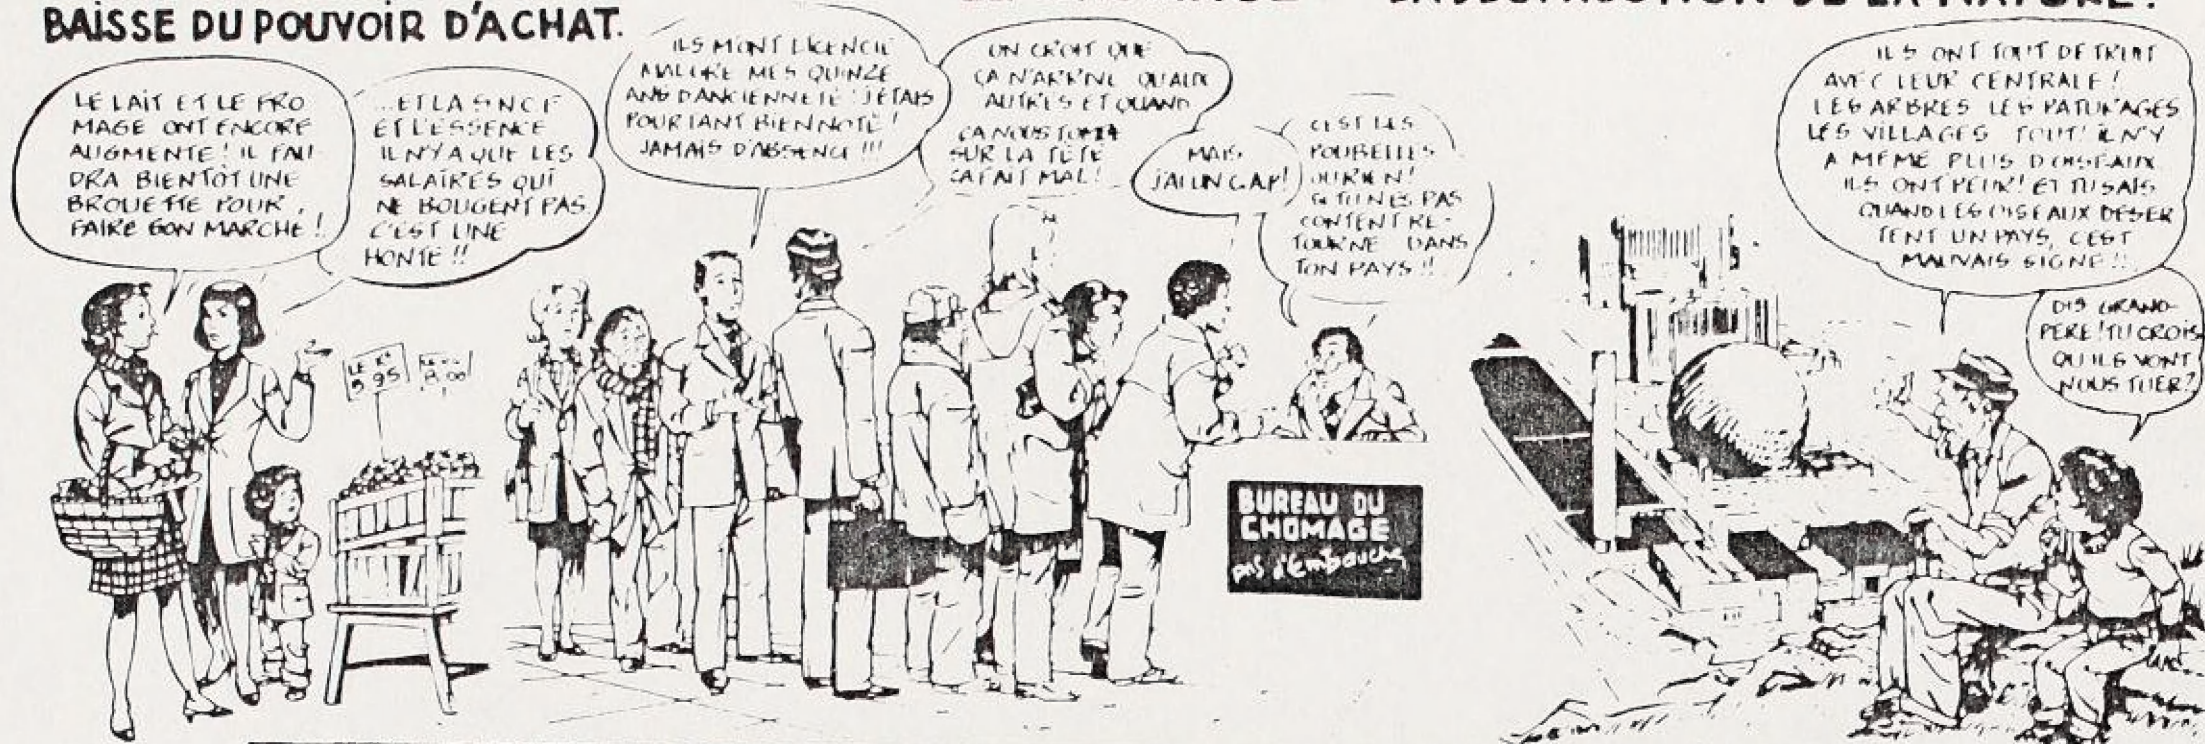 BAISSE DU POUVOIR D'ACHAT.
LA DESTRUCTION DE LA NATURE!
LE LAIT ET LE FRO
MAGE ONT ENCORE
AUGMENTE! IL FAU-
DRA BIENTOT UNE
BROUETTE POUR
FAIRE SON MARCHE!
...ET LA SNCF
ET L'ESSENCE
IL N'Y A QUE LES
SALAIRES QUI
NE BOUGENT PAS
C'EST UNE
HONTE!!
LE K°
5 95
8,00
ILS M'ONT LICENCIE
MALGRE MES QUINZE
ANS D'ANCIENNETE! J'ETAIS
POURTANT BIEN NOTE!
JAMAIS D'ABSENCE!!!
ON CROIT QUE
ÇA N'ARRIVE QU'AUX
AUTRES ET QUAND
ÇA NOUS TOMBE
SUR LA TÊTE
ÇA FAIT MAL!
MAIS
J'AI UN C.A.P!
C'EST LES
POUBELLES
OU RIEN!
SI TU N'ES PAS
CONTENT RE-
TOURNE DANS
TON PAYS!!
BUREAU DU
CHOMAGE
pas d'Embauche
ILS ONT TOUT DETRUIT
AVEC LEUR CENTRALE!
LES ARBRES LES PATURAGES
LES VILLAGES TOUT! IL N'Y
A MEME PLUS D'OISEAUX
ILS ONT PEUR! ET TU SAIS
QUAND LES OISEAUX DESER
TENT UN PAYS, C'EST
MAUVAIS SIGNE!!
DIS GRAND-
PERE! TU CROIS
QU'ILS VONT
NOUS TUER?